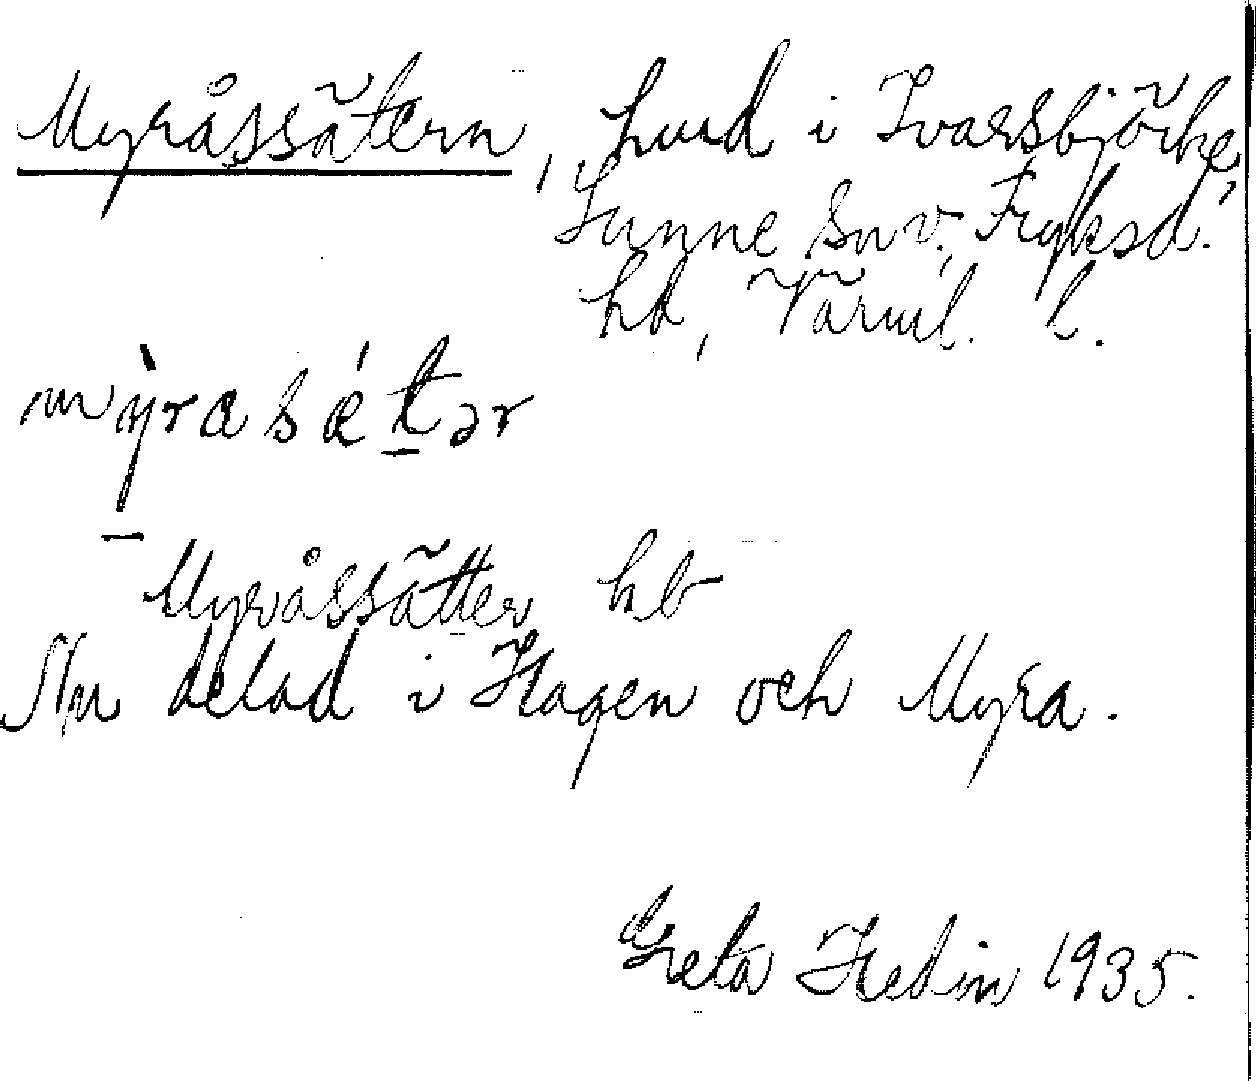 Myråssätern, hmd i Ivarsbjörke,
Sunne sn v., Fryksd.
hd, Värml. l.
mỳ̠rasǽt̠ər
Myråssätter hb
Nu delad i Hagen och Myra.
Greta Hedin 1935.